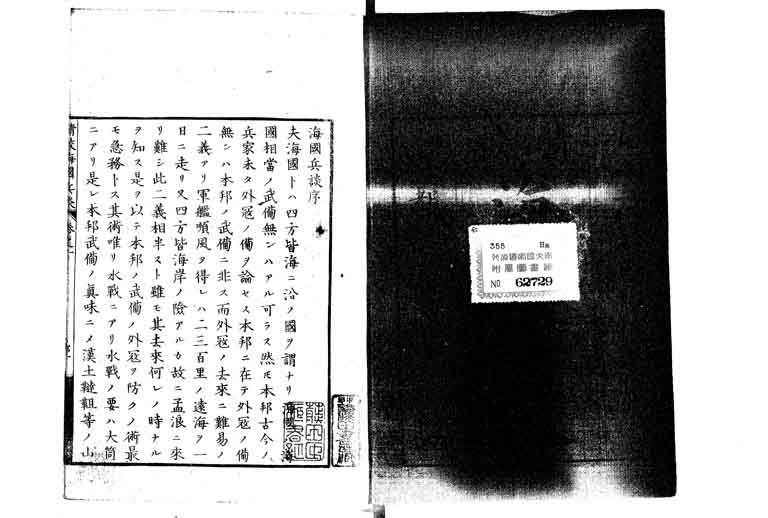 海國兵談序
夫海國トハ四方皆海ニ沿ノ國ヲ謂ナリ海國ハ海
國相當ノ武備無ンハアル可ラス然ルニ本邦古今ノ
兵家未タ外寇ノ備ヲ論セス本邦ニ在テ外寇ノ備
無ンハ本邦ノ武備ニ非ス而外寇ノ去來ニ難易ノ
二義アリ軍艦順風ヲ得レハ二三百里ノ遠海ヲ一
日ニ走リ又四方皆海岸ノ險アルカ故ニ孟浪ニ來
リ難シ此二義相半スト雖モ其去來何レノ時ナル
ヲ知ス是ヲ以テ本邦ノ武備ノ外寇ヲ防クノ術最
モ急務トス其術唯リ水戰ニアリ水戰ノ要ハ大筒
ニアリ是レ本邦武備ノ眞味ニメ漢土韃靼等ノ山
海國兵談 卷之一
355
圖書
NO 62729